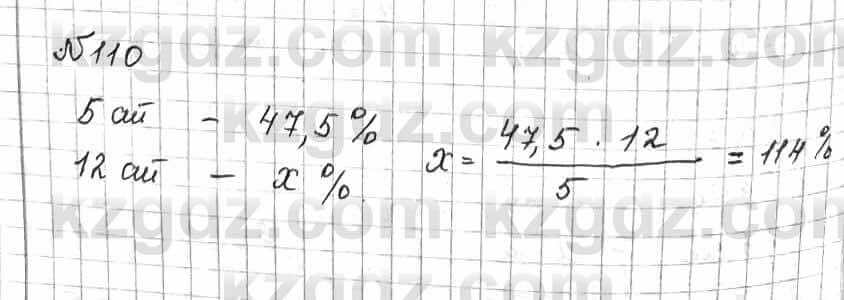 №110
5 ай – 47,5%
12 ай – x %. x = 47,5 · 12 / 5 = 114%
kzgdz.com kzgdz.com
kzgdz.com kzgdz.com
kzgdz.com kzgdz.com